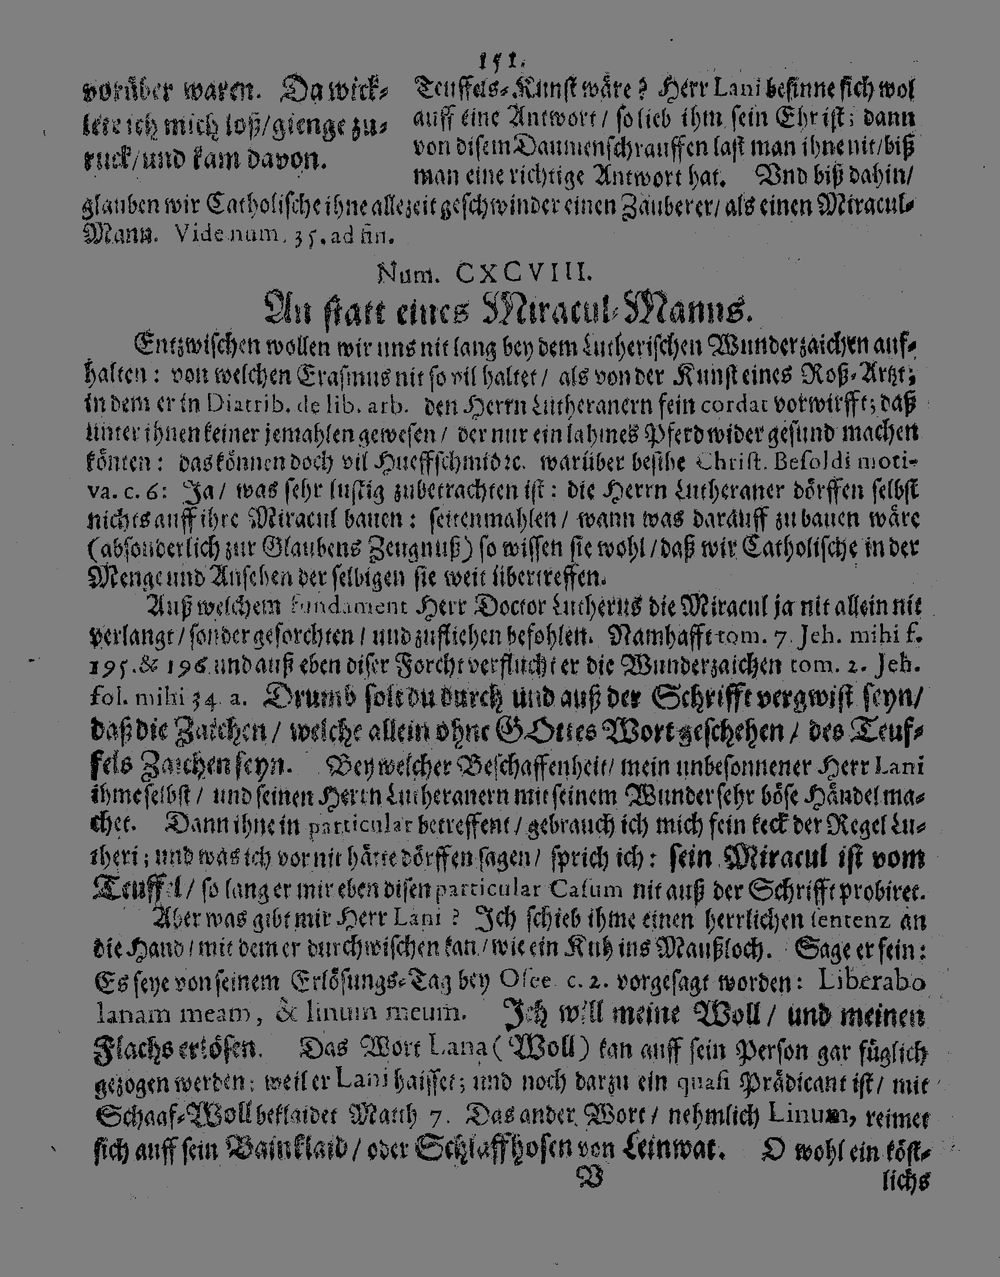 151.
vorüber waren. Da wick-
lete ich mich loß/gienge zu-
ruck/und kam davon.
Teuffels-Kunst wäre? Herr Lani besinne sich wol
auff eine Antwort/ so lieb ihm sein Ehr ist; dann
von disem Daumenschrauffen last man ihne nit/biß
man eine richtige Antwort hat. Vnd biß dahin/
glauben wir Catholische ihne allezeit geschwinder einen Zauberer/ als einen Miracul-
Mann. Vide num. 35. ad fin.
Num. CXCVIII.
An statt eines Miracul-Manns.
Entzwischen wollen wir uns nit lang bey dem Lutherischen Wunderzaichen auf-
halten: von welchen Erasmus nit so vil haltet/ als von der Kunst eines Roß-Artzt;
in dem er in Diatrib. de lib. arb. den Herrn Lutheranern fein cordat vorwirfft; daß
unter ihnen keiner jemahlen gewesen/ der nur ein lahmes Pferd wider gesund machen
könten: das können doch vil Hueffschmid ꝛc. warüber besihe Christ. Besoldi moti-
va. c. 6: Ja/ was sehr lustig zubetrachten ist: die Herrn Lutheraner dörffen selbst
nichts auff ihre Miracul bauen: seitenmahlen/ wann was darauff zu bauen wäre
(absonderlich zur Glaubens Zeugnuß) so wissen sie wohl/daß wir Catholische in der
Menge und Ansehen der selbigen sie weit übertreffen.
Auß welchem fundament Herr Doctor Lutherus die Miracul ja nit allein nit
verlangt/sonder geforchten/ und zufliehen befohlen. Namhafft tom. 7. Jeh. mihi f.
195. & 196 und auß eben diser Forcht verflucht er die Wunderzaichen tom. 2. Jeh.
fol. mihi 34. a. Drumb solt du durch und auß der Schrifft vergwist seyn/
daß die Zaichen/ welche allein ohne GOttes Wort geschehen/ des Teuf-
fels Zaichen seyn. Bey welcher Beschaffenheit/ mein unbesonnener Herr Lani
ihme selbst/ und seinen Herrn Lutheranern mit seinem Wunder sehr böse Händel ma-
chet. Dann ihne in particular betreffent/ gebrauch ich mich fein keck der Regel Lu-
theri; und was ich vor nit hätte dörffen sagen/ sprich ich: sein Miracul ist vom
Teuffel/ so lang er mir eben disen particular Casum nit auß der Schrifft probiret.
Aber was gibt mir Herr Lani? Ich schieb ihme einen herrlichen sentenz an
die Hand/ mit dem er durchwischen kan/ wie ein Kuh ins Maußloch. Sage er fein:
Es seye von seinem Erlösungs-Tag bey Osee c. 2. vorgesagt worden: Liberabo
lanam meam, & linum meum. Ich will meine Woll/ und meinen
Flachs erlösen. Das Wort Lana (Woll) kan auff sein Person gar füglich
gezogen werden: weil er Lani haisset; und noch darzu ein quasi Prädicant ist/ mit
Schaaf-Woll beklaidet Matth 7. Das ander Wort/ nehmlich Linum, reimet
sich auff sein Bainklaid/ oder Schlaffhosen von Leinwat. O wohl ein köst-
V
lichs